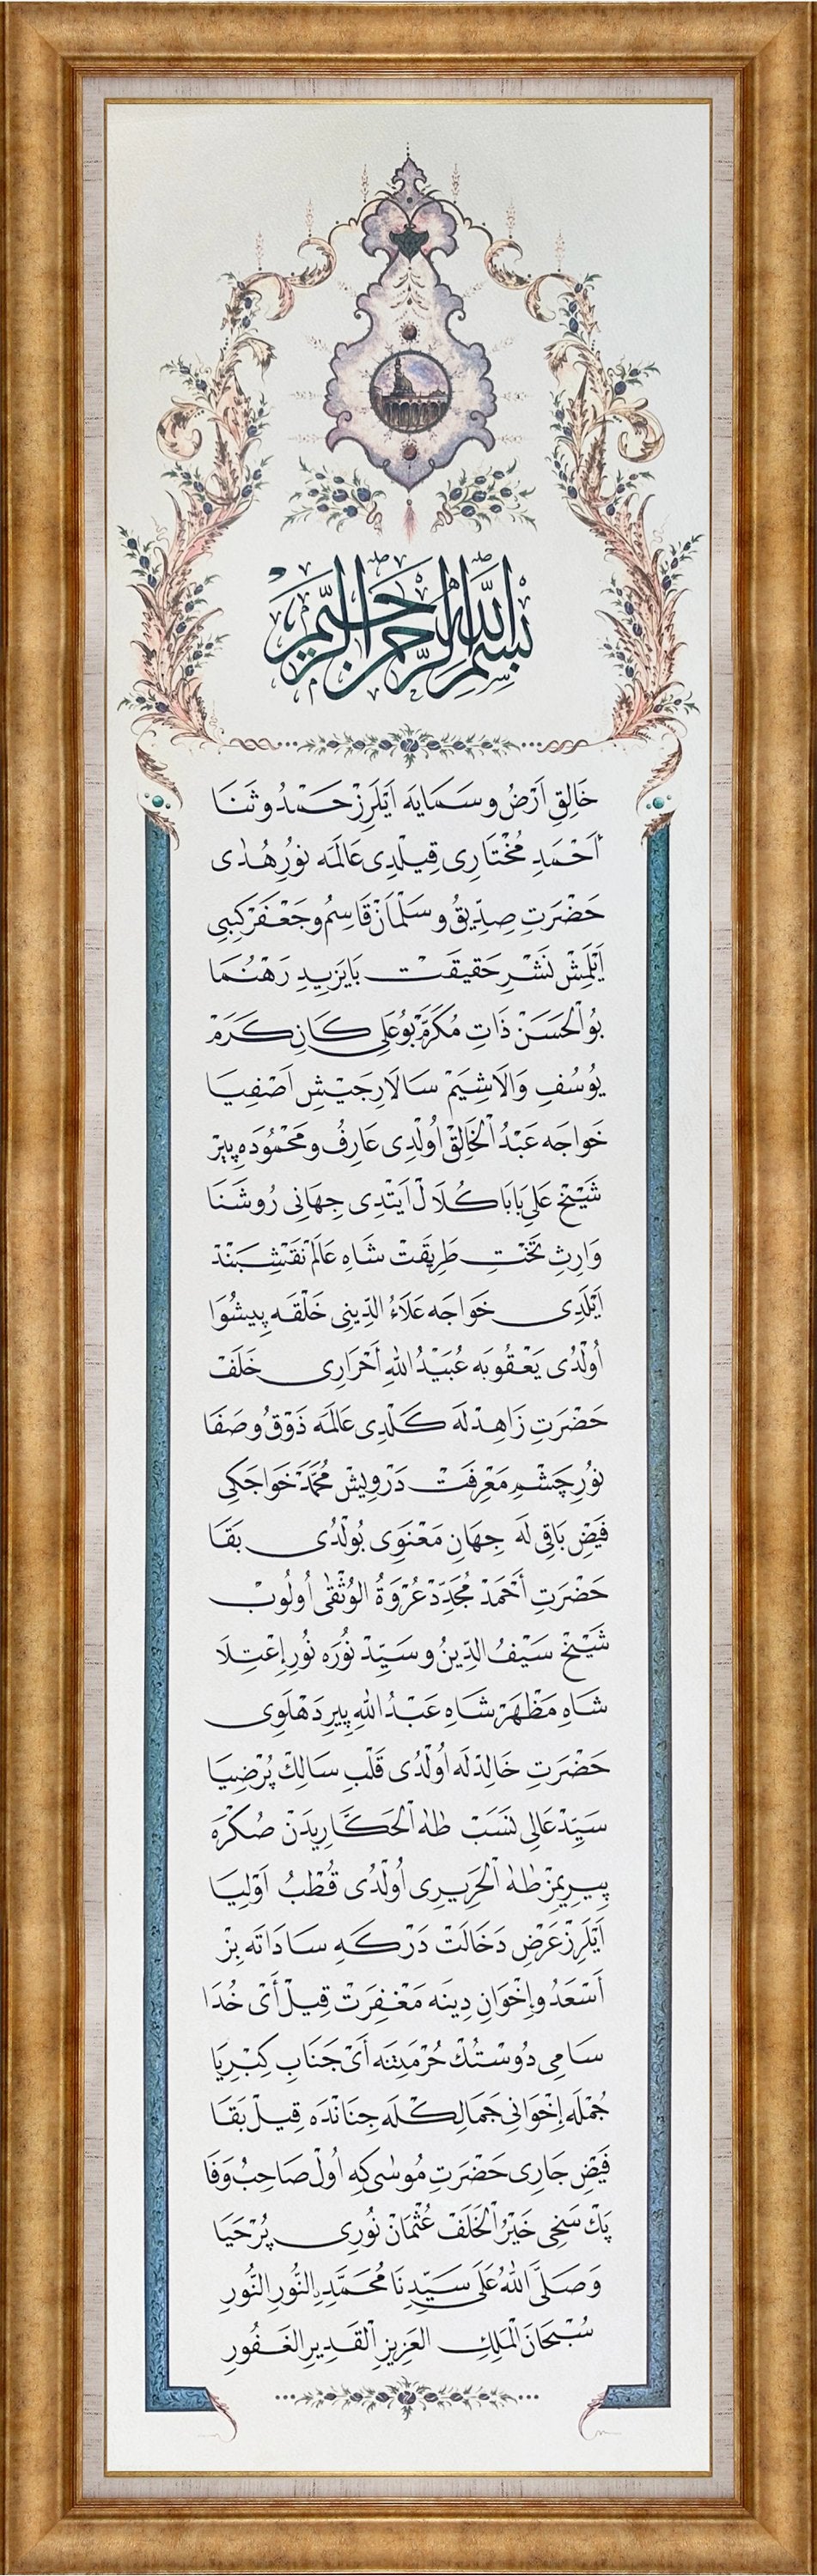 بِسْمِ اللّٰهِ الرَّحْمٰنِ الرَّحِيمِ
خَالِقِ اَرْضُ و سَمَايَه اَيْلَرِزْ حَمْدُ و ثَنَا
أَحْمَدِ مُخْتَارِى قِيلْدِى عَالَمَه نُورِ هُدٰى
حَضْرَتِ صِدِّيقُ و سَلْمَانْ قَاسِمُ و جَعْفَرْ كِبِى
اَيْلَمِشْ نَشْرِ حَقِيقَتْ بَايَزِيدِ رَهْنُمَا
بُو الْحَسَنْ ذَاتِ مُكَرَّمْ بُوعَلِى كَانِ كَرَمْ
يُوسُفِ وَالَاشِيَمْ سَالَارِ جَيْشِ اَصْفِيَا
خَواجَه عَبْدُ الْخَالِقْ اُولْدِى عَارِفُ و مَحْمُودَه پِيرْ
شَيْخْ عَلِى بَابَا كُلَالْ اَيْتْدِى جِهَانِى رُوشَنَا
وَارِثِ تَخْتِ طَرِيقَتْ شَاهِ عَالَمْ نَقْشِبَنْدْ
اَيْلَدِى خَواجَه عَلَاءُ الدِّينِى خَلْقَه پِيشُوَا
اُولْدُى يَعْقُوبَه عُبَيْدُ اللّٰهِ اَحْرَارِى خَلَفْ
حَضْرَتِ زَاهِدْلَه كَلْدِى عَالَمَه ذَوْقُ و صَفَا
نُورِ چَشْمِ مَعْرِفَتْ دَرْوِيشْ مُحَمَّدْ خَواجَكِى
فَيْضِ بَاقِى لَه جِهَانِ مَعْنَوِى بُولْدُى بَقَا
حَضْرَتِ أَحْمَدْ مُجَدِّدْ عُرْوَةُ الْوُثْقٰى اُولُوبْ
شَيْخْ سَيْفُ الدِّينُ و سَيِّدْ نُورَه نُورِ اِعْتِلَا
شَاهِ مَظْهَرْ شَاهِ عَبْدُ اللّٰهِ پِيرِ دَهْلَوِى
حَضْرَتِ خَالِدْلَه اُولْدُى قَلْبِ سَالِكْ پُرْضِيَا
سَيِّدْ عَالِى نَسَبْ طٰهٰ الْحَكَّارِيدَنْ صُكْرَه
پِيرِيمِزْ طٰهٰ الْحَرِيرِى اُولْدُى قُطْبُ اَوْلِيَا
اَيْلَرِزْ عَرْضِ دَخَالَتْ دَرْكَهِ سَادَاتَه بِزْ
أَسْعَدُ و إِخْوَانِ دِينَه مَغْفِرَتْ قِيلْ أَىْ خُدَا
سَامِى دُوسْتُكْ حُرْمَتِنَه أَىْ جَنَابِ كِبْرِيَا
جُمْلَه إِخْوَانِى جَمَالِكْلَه جِنَانْدَه قِيلْ بَقَا
فَيْضِ جَارِى حَضْرَتِ مُوسٰى كِه اُولْ صَاحِبُ وَفَا
پَكْ سَخِى خَيْرُ الْخَلَفْ عُثْمَانْ نُورِى پُرْحَيَا
وَصَلَّى اللّٰهُ عَلَى سَيِّدِنَا مُحَمَّدٍ النُّورِ النُّورِ
سُبْحَانَ الْمَلِكِ الْعَزِيزِ الْقَدِيرِ الْغَفُورِ